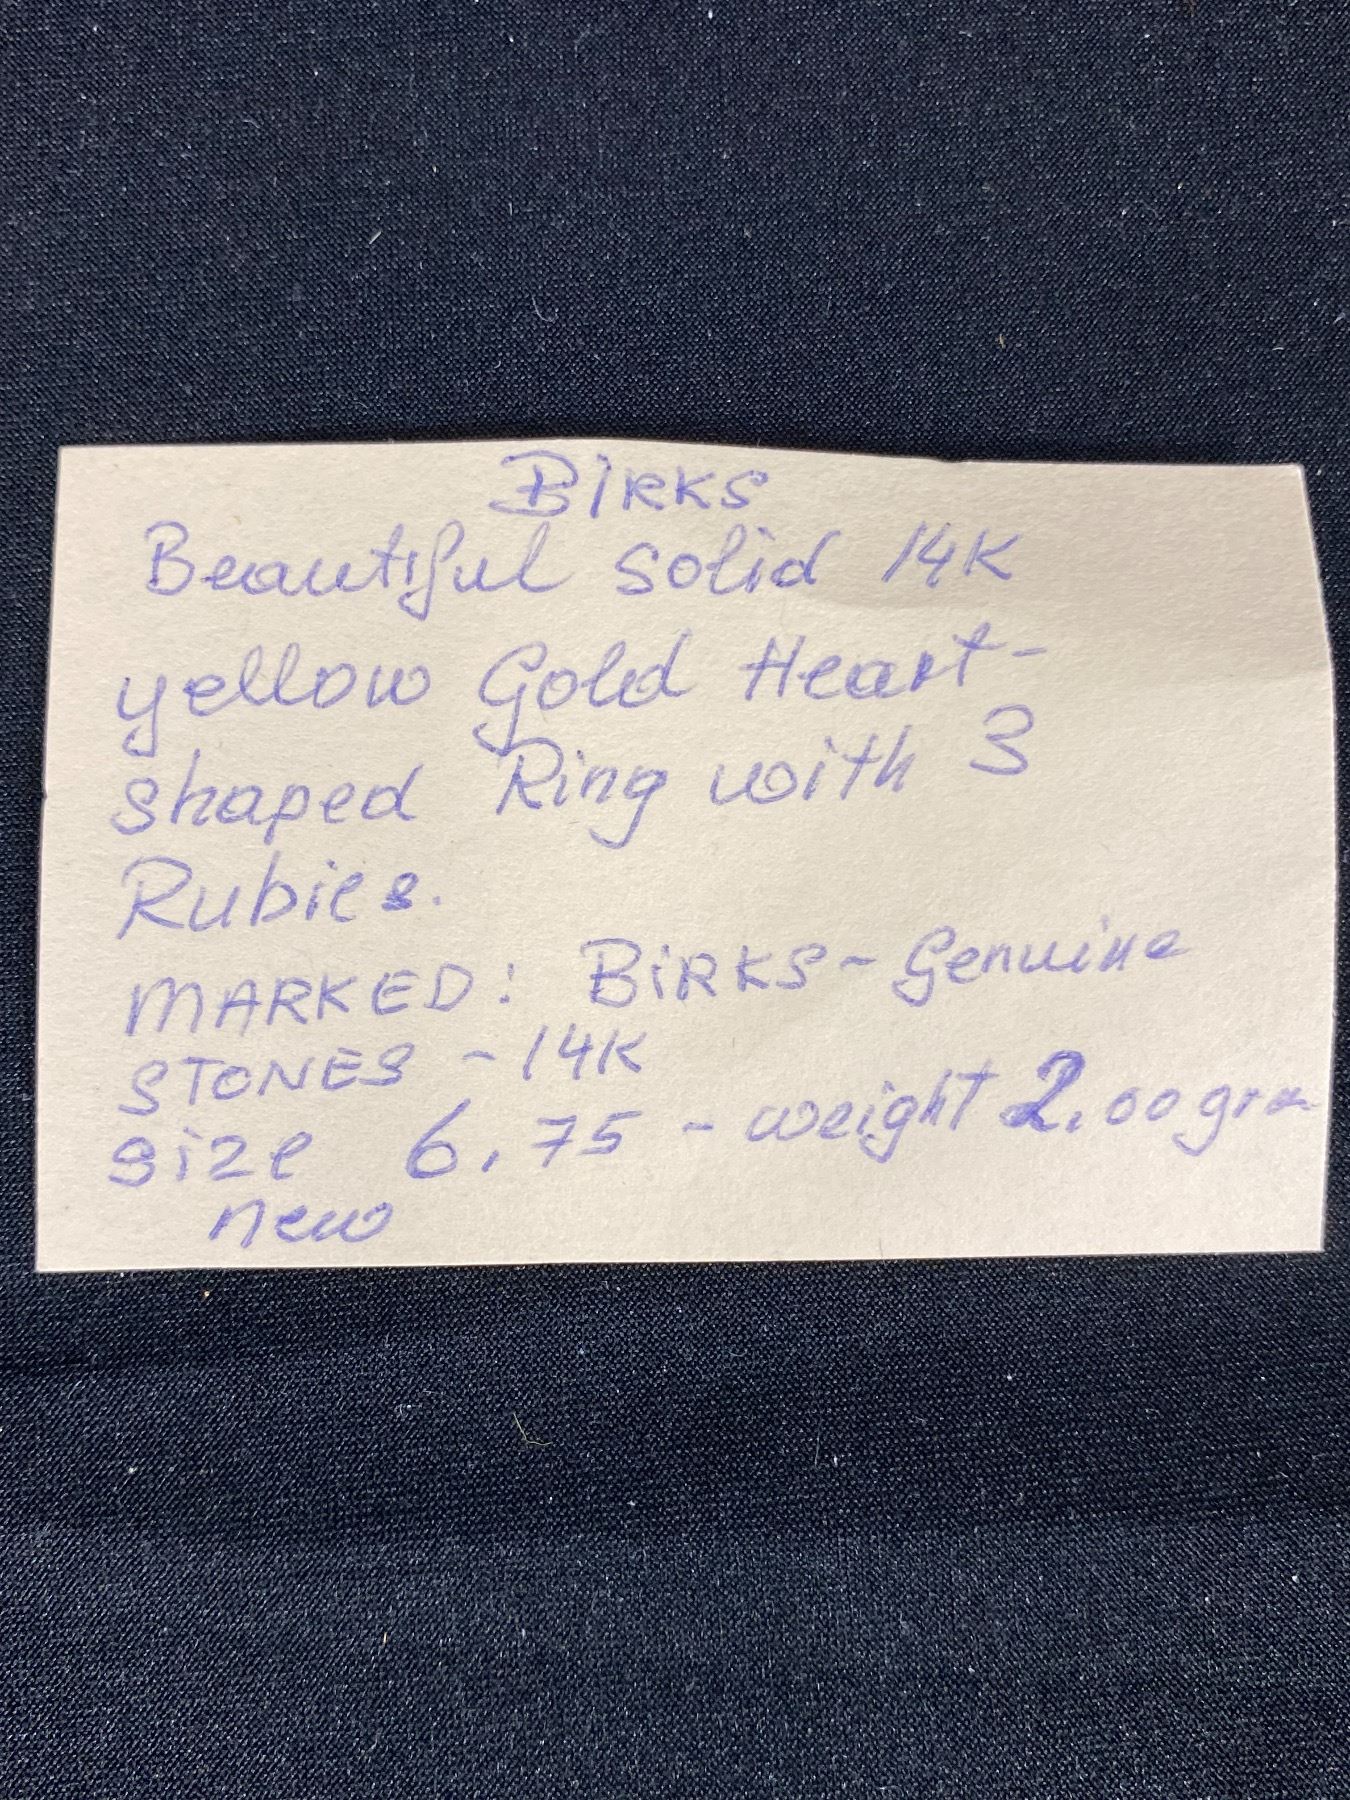 BIRKS
Beautiful solid 14K
yellow Gold Heart-
shaped Ring with 3
Rubies.
MARKED: BIRKS - Genuine
STONES - 14K
size 6.75 - weight 2.00 gram
new